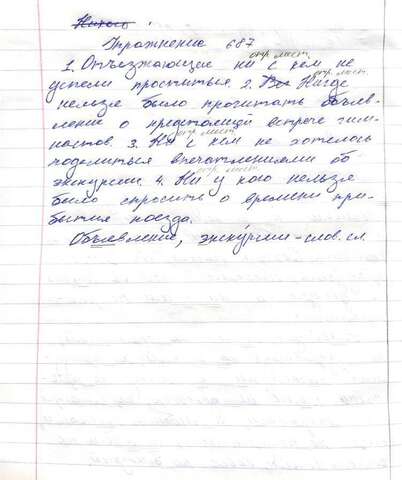 Никого
Упражнение 687
отр. мест.
1. Отъезжающие ни с кем не
отр. мест.
успели проститься. 2. Нигде
нельзя было прочитать объяв-
ление о предстоящей встрече гим-
отр. мест.
настов. 3. Ни с кем не хотелось
поделиться впечатлениями об
отр. мест.
экскурсии. 4. Ни у кого нельзя
было спросить о времени при-
бытия поезда.
Объявление, экскурсии - слов. сл.